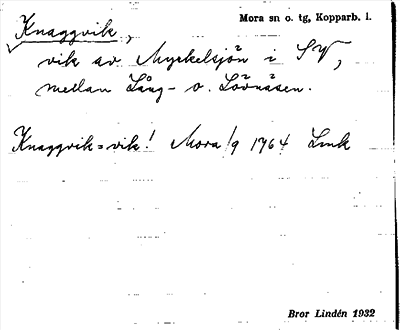 Knaggvik,
Mora sn o. tg, Kopparb. l.
vik av Myrkelsjön i SV,
medlan Lång- o. Lövnäsen.
Knaggvik = vik! Mora 1/9 1764 Lmk
Bror Lindén 1932